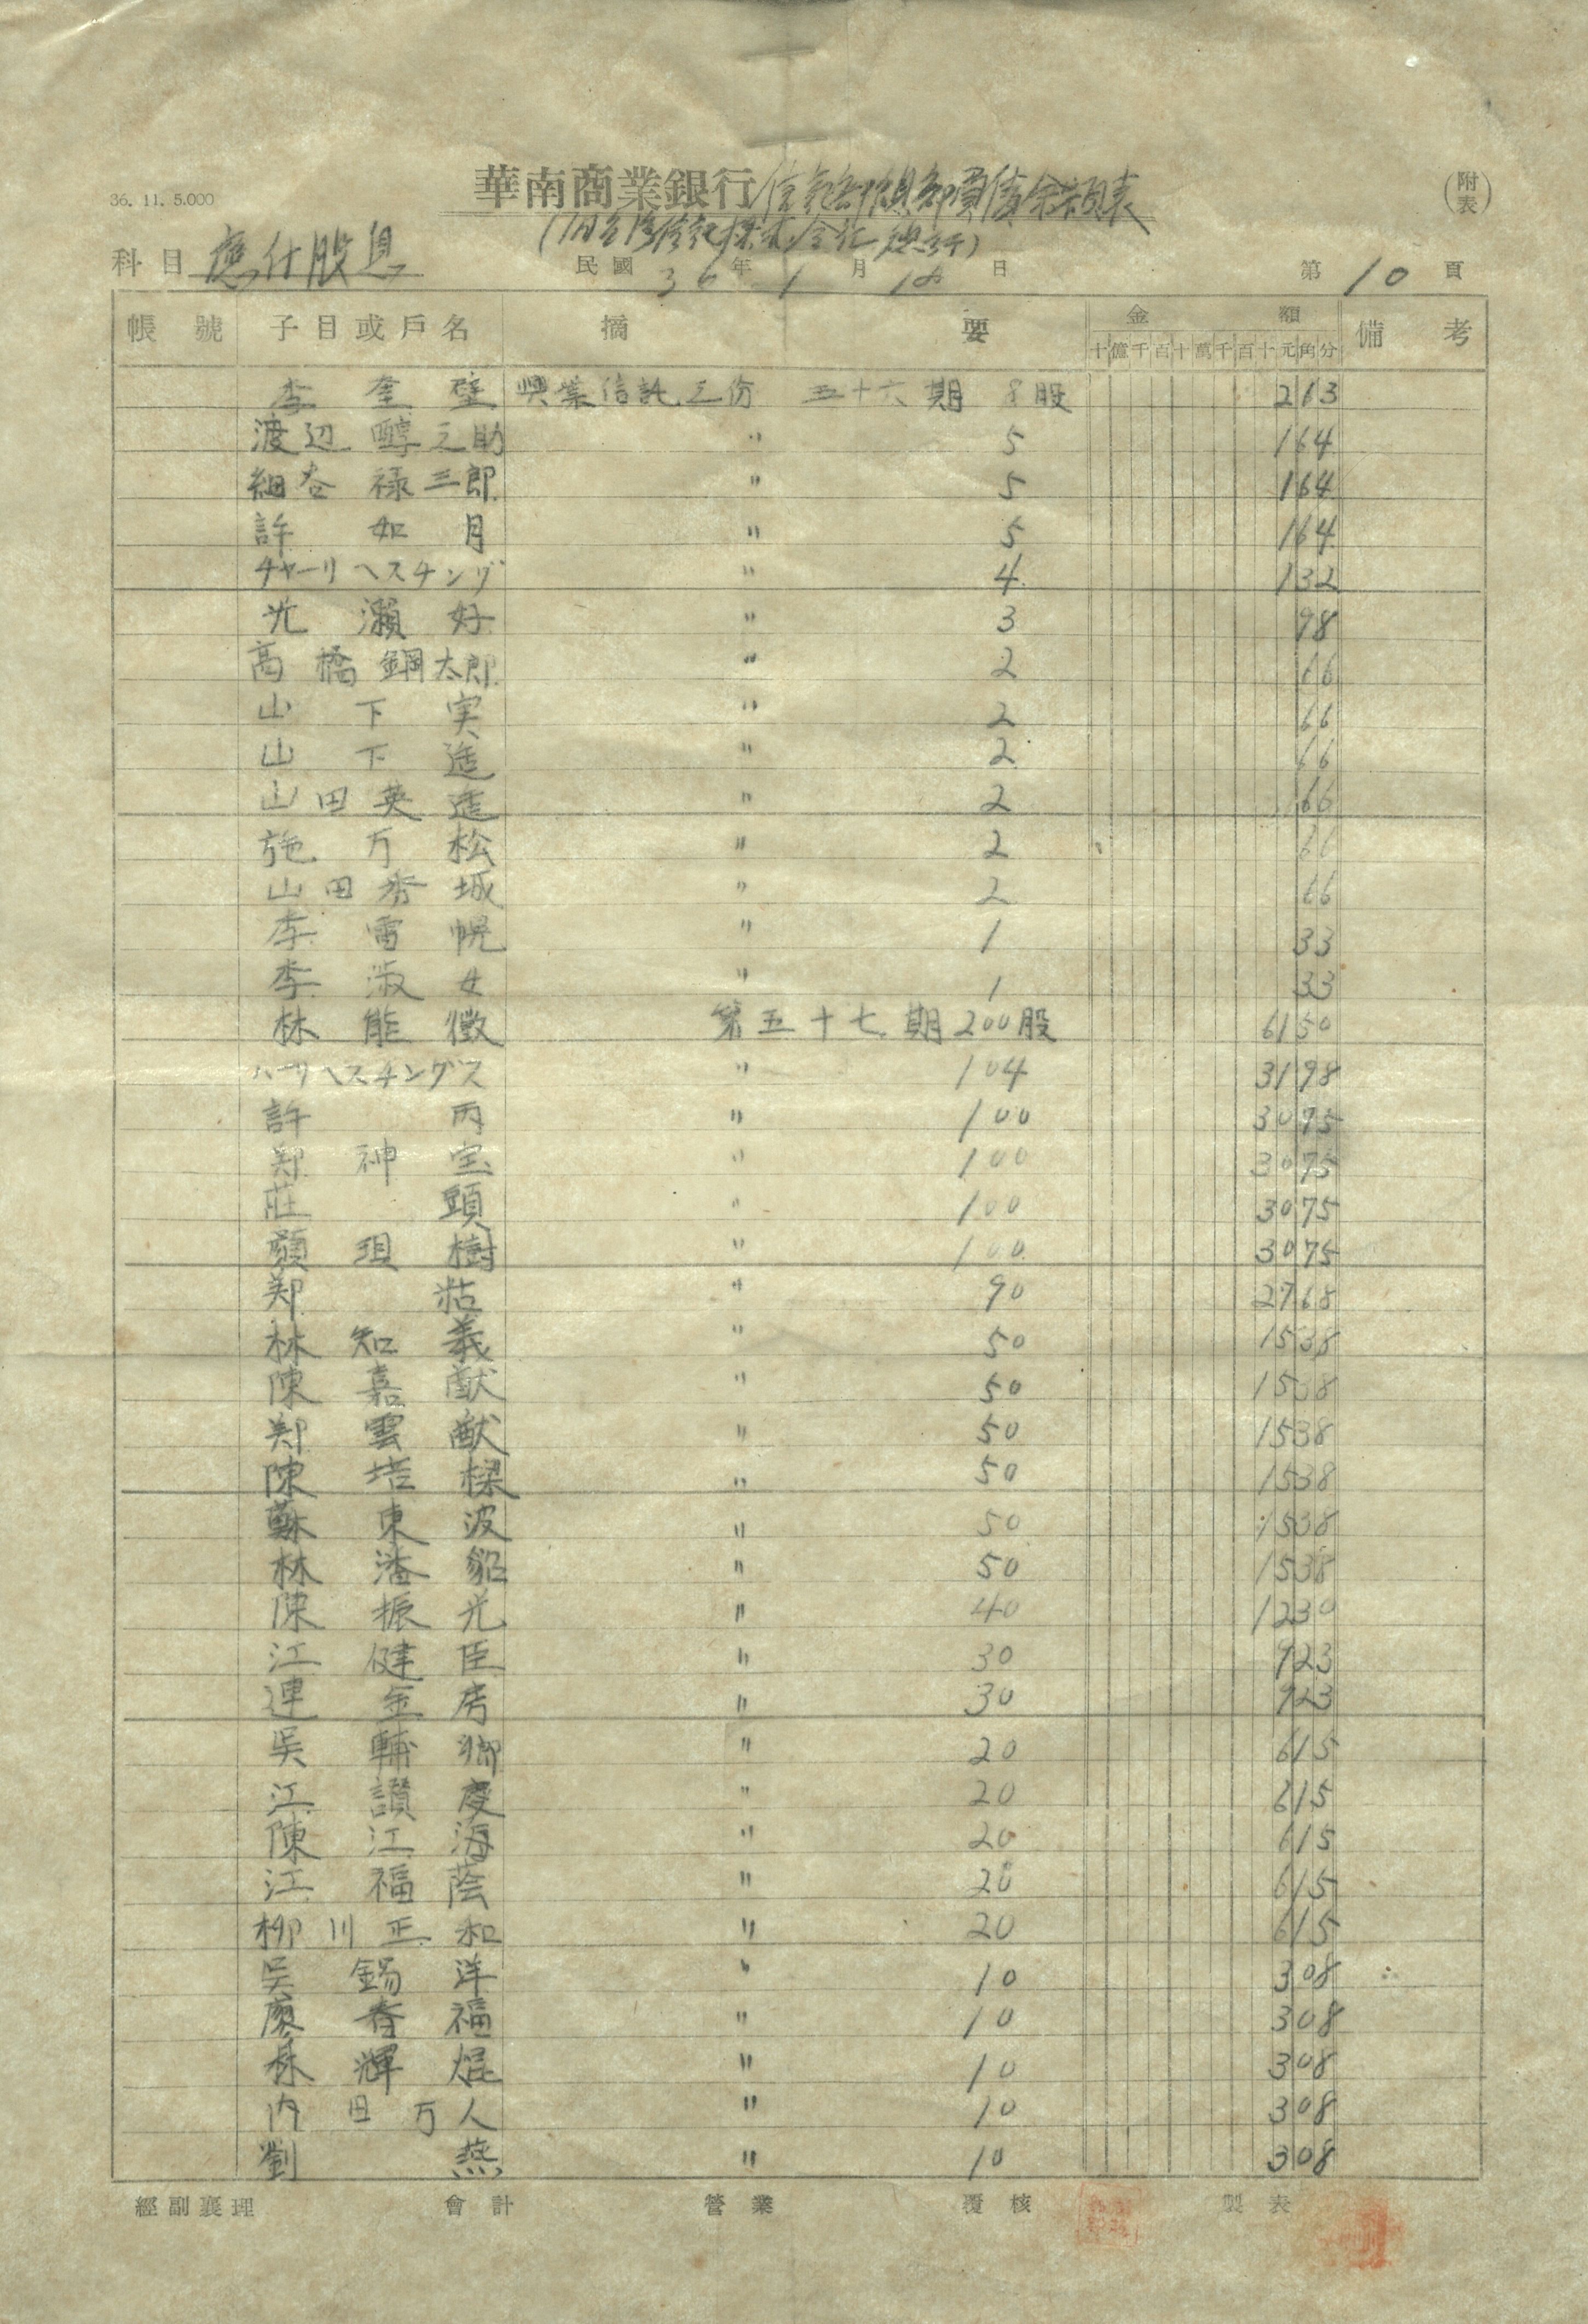 36. 11. 5.000
華南商業銀行信託部總部負債余額表
(附表)
科目 應付股息 民國 36 年 1 月 18 日 第 10 頁
帳號 子目或戶名 摘要 金額 備考
十億千百十萬千百十元角分
李奎壁 興業信託之份 五十六期 8股 213
渡辺醇之助 〃 5 164
細谷禄三郎 〃 5 164
許如月 〃 5 164
チャーリヘスチング 〃 4 132
光瀨好 〃 3 98
高橋鋼太郎 〃 2 66
山下実 〃 2 66
山下造 〃 2 66
山田英造 〃 2 66
施万松 〃 2 66
山田秀城 〃 2 66
李雷幌 〃 1 33
李淑女 〃 1 33
林熊徵 第五十七期 200股 6150
ハーリヘスチングス 〃 104 3198
許丙 〃 100 3075
郑神宝 〃 100 3075
莊頭 〃 100 3075
顏珇樹 〃 100 3075
郑粘 〃 90 2768
林知義 〃 50 1538
陳嘉猷 〃 50 1538
郑雲猷 〃 50 1538
陳塔樑 〃 50 1538
蘇東波 〃 50 1538
林潘貂 〃 50 1538
陳振光 〃 40 1230
江健臣 〃 30 923
連金房 〃 30 923
吳輔卿 〃 20 615
江讚慶 〃 20 615
陳江海 〃 20 615
江福蔭 〃 20 615
柳川正和 〃 20 615
吳錫洋 〃 10 308
廖春福 〃 10 308
林輝焜 〃 10 308
内田万人 〃 10 308
劉燕 〃 10 308
經副襄理 會計 營業 覆核 製表